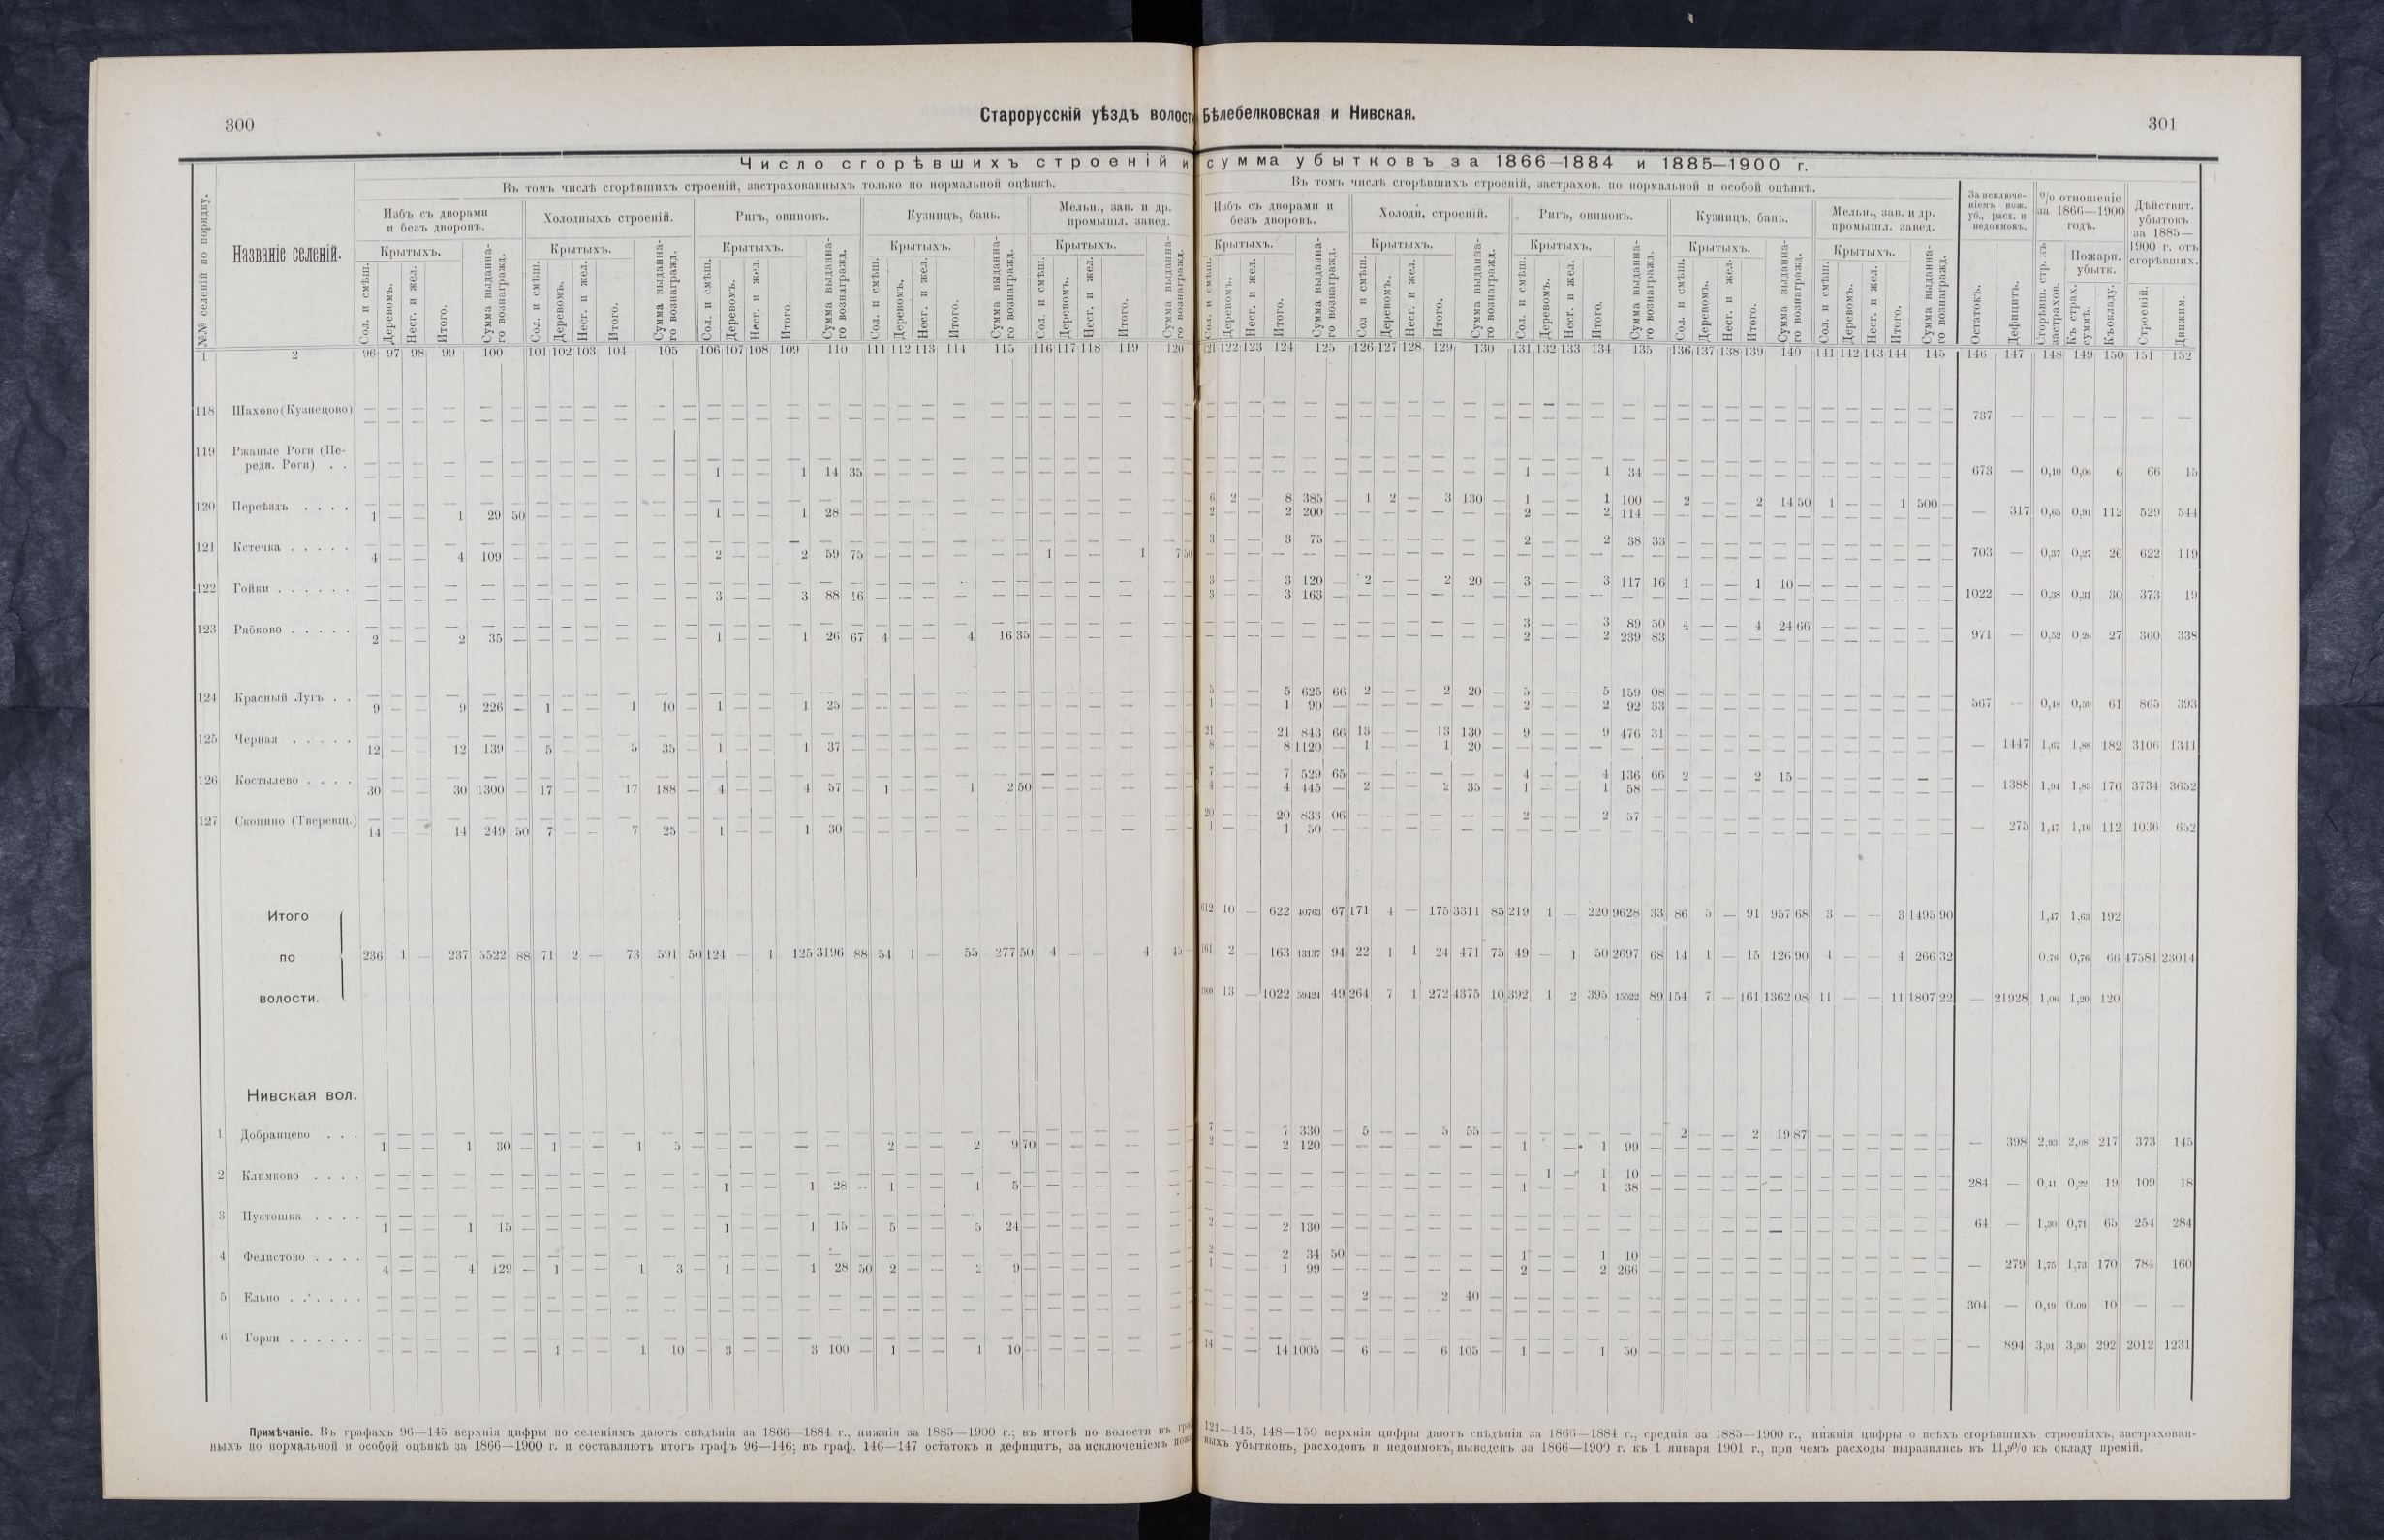 300
Старорусскій уѣздъ волости Бѣлебелковская и Нивская.
301
Число сгорѣвшихъ строеній и сумма убытковъ за 1866—1884 и 1885—1900 г.
№№ селеній по порядку.
Названіе селеній.
Въ томъ числѣ сгорѣвшихъ строеній, застрахованныхъ только по нормальной оцѣнкѣ.
Избъ съ дворами и безъ дворовъ.
Холодныхъ строеній.
Ригъ, овиновъ.
Кузницъ, бань.
Мельн., зав. и др. промышл. завед.
Крытыхъ.
Сол. и смѣш.
Деревомъ.
Несг. и жел.
Итого.
Сумма выданнаго вознагражд.
Въ томъ числѣ сгорѣвшихъ строеній, застрахов. по нормальной и особой оцѣнкѣ.
Избъ съ дворами и безъ дворовъ.
Холодн. строеній.
Ригъ, овиновъ.
Кузницъ, бань.
Мельн., зав. и др. промышл. завед.
За исключеніемъ пож. уб., расх. и недоимокъ.
Остатокъ.
Дефицитъ.
% отношеніе за 1866—1900 годъ.
Сгорѣвш. стр. къ застрахов.
Пожарн. убытк.
Къ страх. суммѣ.
Къ окладу.
Дѣйствит. убытокъ за 1885—1900 г. отъ сгорѣвших.
Строеній.
Движим.
1 2 96 97 98 99 100 101 102 103 104 105 106 107 108 109 110 111 112 113 114 115 116 117 118 119 120 121 122 123 124 125 126 127 128 129 130 131 132 133 134 135 136 137 138 139 140 141 142 143 144 145 146 147 148 149 150 151 152
118 Шахово (Кузнецово) — 737 — — — — — —
119 Ржаные Роги (Передн. Роги) . .
1 — — 1 14 35 1 — — 1 34 — 673 — 0,10 0,06 6 66 15
120 Переѣздъ . . . . 6 2 — 8 385 — 1 2 — 3 130 — 1 — — 1 100 — 2 — — 2 14 50 1 — — 1 500 —
1 — — 1 29 50 1 — — 1 28 — 2 — — 2 200 2 — — 2 114 — 317 0,65 0,91 112 529 544
121 Кстечка . . . . . 3 — — 3 75 2 — — 2 38 33
4 — — 4 109 — 2 — — 2 59 75 1 — — 1 7 50 703 — 0,37 0,27 26 622 119
122 Гойки . . . . . . 3 — — 3 120 — 2 — — 2 20 — 3 — — 3 117 16 1 — — 1 10 —
3 — — 3 88 16 3 — — 3 163 — 1022 — 0,38 0,31 30 373 19
123 Рябково . . . . . 3 — — 3 89 50 4 — — 4 24 66
2 — — 2 35 — 1 — — 1 26 67 4 — — 4 16 35 2 — — 2 239 83 971 — 0,52 0,26 27 360 338
124 Красный Лугъ . . 5 — — 5 625 66 2 — — 2 20 — 5 — — 5 159 08
9 — — 9 226 — 1 — — 1 10 — 1 — — 1 25 — 1 — — 1 90 — 2 — — 2 92 33 567 — 0,48 0,59 61 865 393
125 Черная . . . . . 21 — — 21 843 66 13 — — 13 130 — 9 — — 9 476 31
12 — — 12 139 — 5 — — 5 35 — 1 — — 1 37 — 8 — — 8 1120 — 1 — — 1 20 — — 1447 1,67 1,88 182 3106 1311
126 Костылево . . . . 7 — — 7 529 65 4 — — 4 136 66 2 — — 2 15 —
30 — — 30 1300 — 17 — — 17 188 — 4 — — 4 57 — 1 — — 1 2 50 4 — — 4 445 — 2 — — 2 35 — 1 — — 1 58 — — 1388 1,94 1,83 176 3734 3652
127 Скопино (Тверевщ.) 20 — — 20 833 06 2 — — 2 57
14 — — 14 249 50 7 — — 7 25 — 1 — — 1 30 — 1 — — 1 50 — — 275 1,47 1,16 112 1036 652
Итого 612 10 — 622 40763 67 171 4 — 175 3311 85 219 1 — 220 9628 33 86 5 — 91 957 68 3 — — 3 1495 90 1,47 1,63 192
по 236 1 — 237 5522 88 71 2 — 73 591 50 124 — 1 125 3196 88 54 1 — 55 277 50 4 — — 4 45 — 161 2 — 163 13137 94 22 1 1 24 471 75 49 — 1 50 2697 68 14 1 — 15 126 90 4 — — 4 266 32 0,76 0,76 66 47581 23014
волости. 1009 13 — 1022 59424 49 264 7 1 272 4375 10 392 1 2 395 15522 89 154 7 — 161 1362 08 11 — — 11 1807 22 — 21928 1,06 1,20 120
Нивская вол.
1 Добранцево . . . 7 — — 7 330 — 5 — — 5 55 — 2 — — 2 19 87
1 — — 1 30 — 1 — — 1 5 — 2 — — 2 9 70 2 — — 2 120 — 1 — — 1 99 — — 398 2,93 2,08 217 373 145
2 Климково . . . . — 1 — 1 10
1 — — 1 28 — 1 — — 1 5 — 1 — — 1 38 — 284 — 0,41 0,22 19 109 18
3 Пустошка . . . .
1 — — 1 15 — 1 — — 1 15 — 5 — — 5 24 — 2 — — 2 130 — 64 — 1,30 0,71 65 254 284
4 Фелистово . . . . 2 — — 2 34 50 1 — — 1 10
4 — — 4 129 — 1 — — 1 3 — 1 — — 1 28 50 2 — — 2 9 — 1 — — 1 99 — 2 — — 2 266 — — 279 1,75 1,73 170 784 160
5 Ельно . . . . . . 2 — — 2 40 —
304 — 0,19 0,09 10 — —
6 Горки . . . . . .
1 — — 1 10 — 3 — — 3 100 — 1 — — 1 10 — 14 — — 14 1005 — 6 — — 6 105 — 1 — — 1 50 — — 894 3,91 3,30 292 2012 1231
Примѣчаніе. Въ графахъ 96—145 верхнія цифры по селеніямъ даютъ свѣдѣнія за 1866—1884 г., нижнія за 1885—1900 г.; въ итогѣ по волости въ граф. 121—145, 148—150 верхнія цифры даютъ свѣдѣнія за 1866—1884 г., среднія за 1885—1900 г., нижнія цифры о всѣхъ сгорѣвшихъ строеніяхъ, застрахован-
ныхъ по нормальной и особой оцѣнкѣ за 1866—1900 г. и составляютъ итогъ графъ 96—146; въ граф. 146—147 остатокъ и дефицитъ, за исключеніемъ убытковъ, расходовъ и недоимокъ, выведенъ за 1866—1900 г. къ 1 января 1901 г., при чемъ расходы выразились въ 11,9% къ окладу премій.